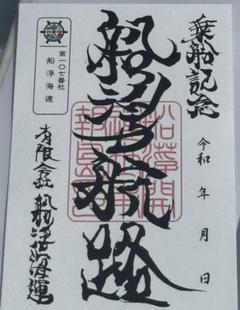 乗船記念
令和 年 月 日
船浮航路
第一〇七番社
船浮海運
有限会社 船浮海運